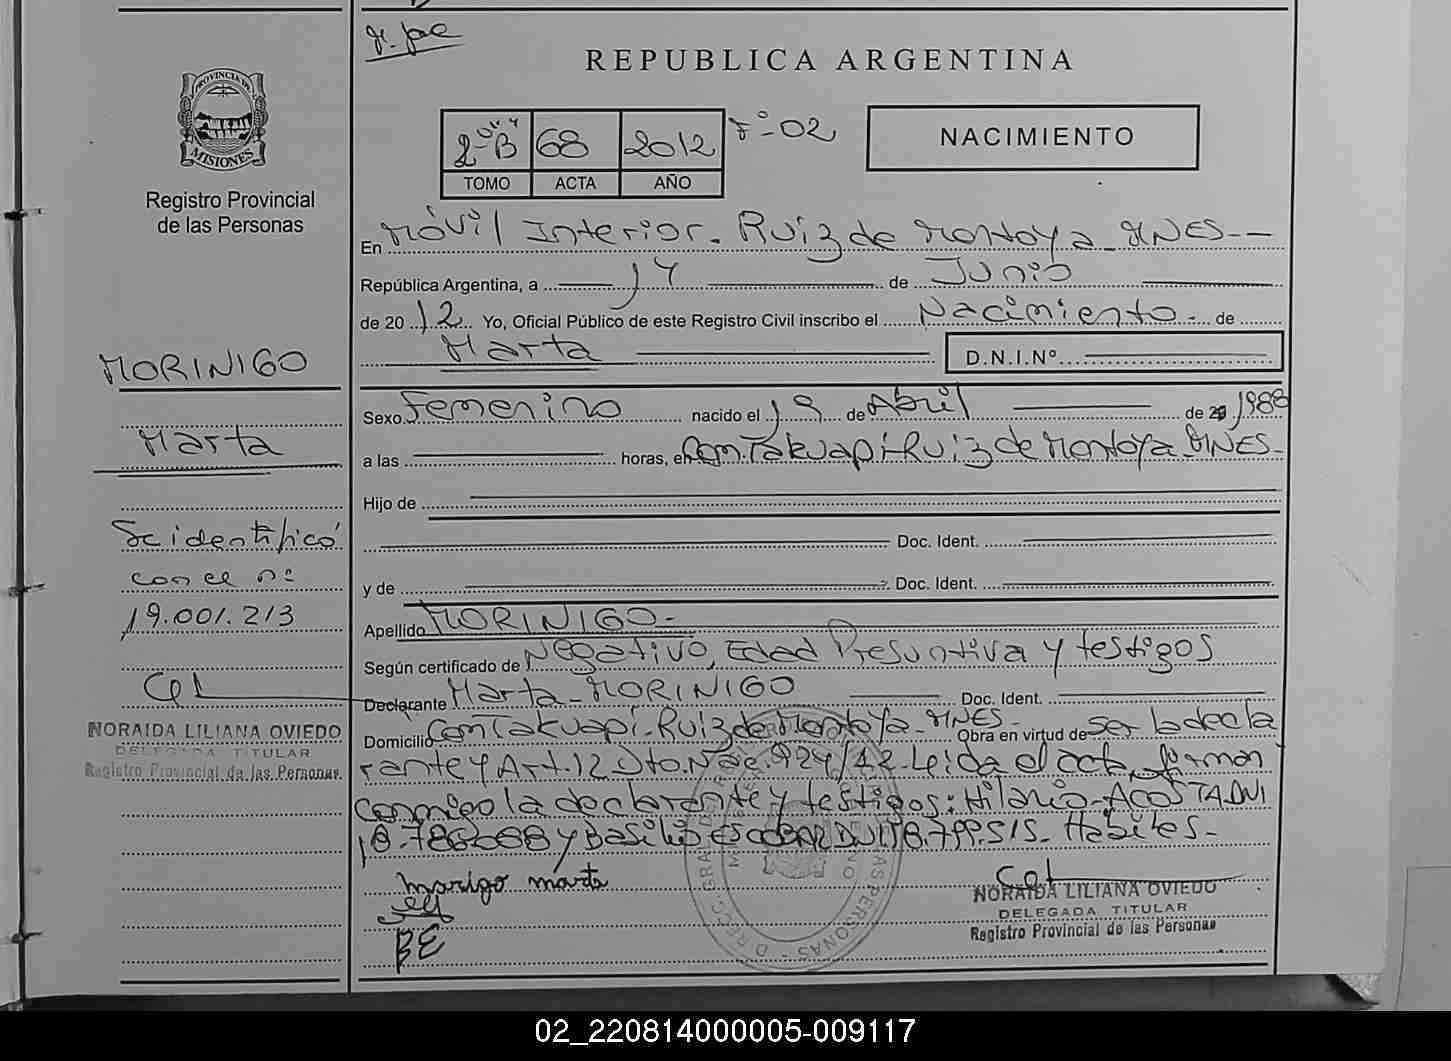 REPUBLICA ARGENTINA
PROVINCIA DE
MISIONES
Registro Provincial
de las Personas
2-B 68 2012 Fº-02
TOMO ACTA AÑO
NACIMIENTO
En Móvil Interior. Ruiz de Montoya - MNES --
República Argentina, a 14 de Junio
de 20 12 Yo, Oficial Público de este Registro Civil inscribo el Nacimiento - de
Marta D.N.I.Nº
MORINIGO
Marta
Se identificó
con el nº
19.001.213
NORAIDA LILIANA OVIEDO
DELEGADA TITULAR
Registro Provincial de las Personas
Sexo Femenino nacido el 19 de Abril de 20 1988
a las horas, en Com. Takuapí-Ruiz de Montoya MNES-
Hijo de
Doc. Ident.
y de Doc. Ident.
Apellido MORINIGO-
Según certificado de Negativo, Edad Presuntiva y testigos
Declarante Marta - MORINIGO Doc. Ident.
Domicilio Com Takuapí-Ruiz de Montoya - MNES - Obra en virtud de ser la decla
rante y Art. 12 Dto. 924/12 - Leida el acta, firman
conmigo la declarante y testigos: Hilario - ACOSTA DNI
18.786.068 y Basilio ESCOBAR DNI 18.799.515 - Hábiles -
Marigo marta
BE
NORAIDA LILIANA OVIEDO
DELEGADA TITULAR
Registro Provincial de las Personas
02_220814000005-009117